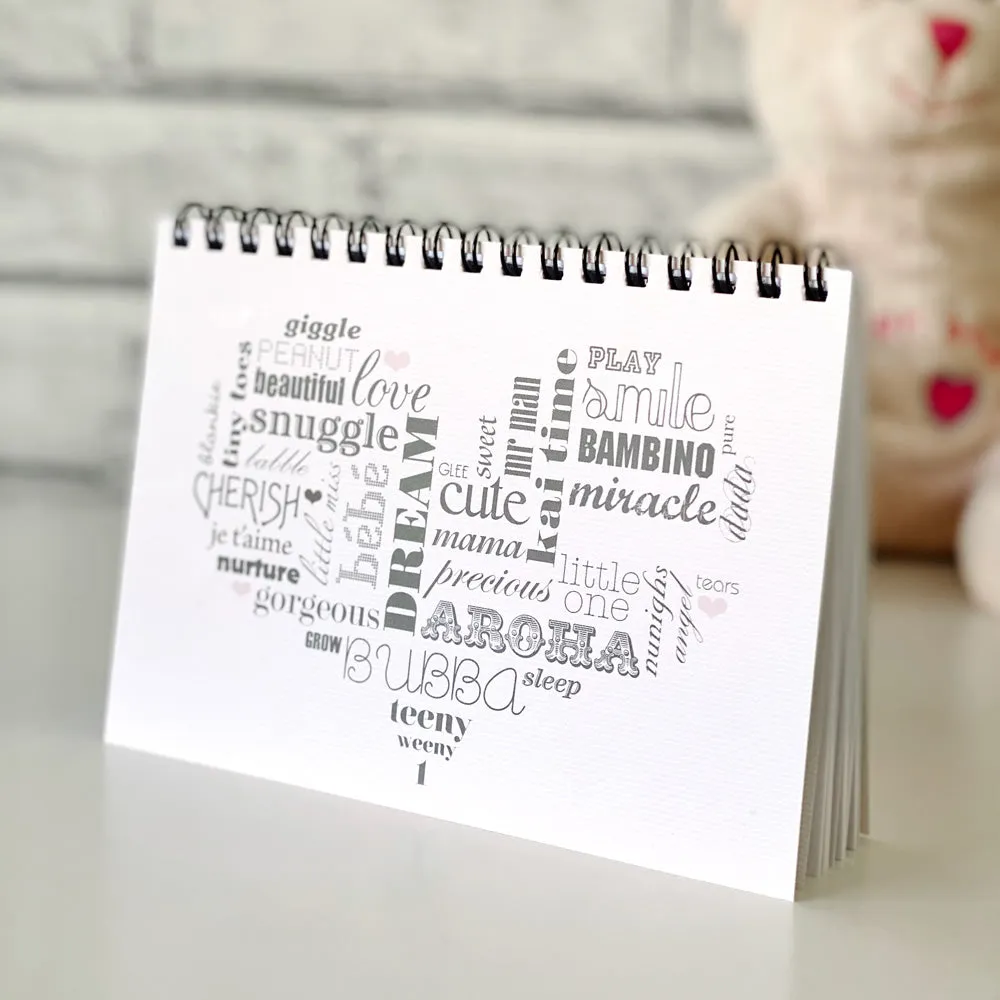 giggle
PEANUT
beautiful
love
snuggle
tiny toes
blankie
babble
CHERISH
little miss
bébé
je t'aime
nurture
gorgeous
DREAM
GROW
BUBBA
teeny
weeny
1
GLEE
sweet
mr man
kai time
cute
mama
precious
AROHA
sleep
PLAY
smile
BAMBINO
miracle
pure
dada
little
one
nunighs
angel
tears